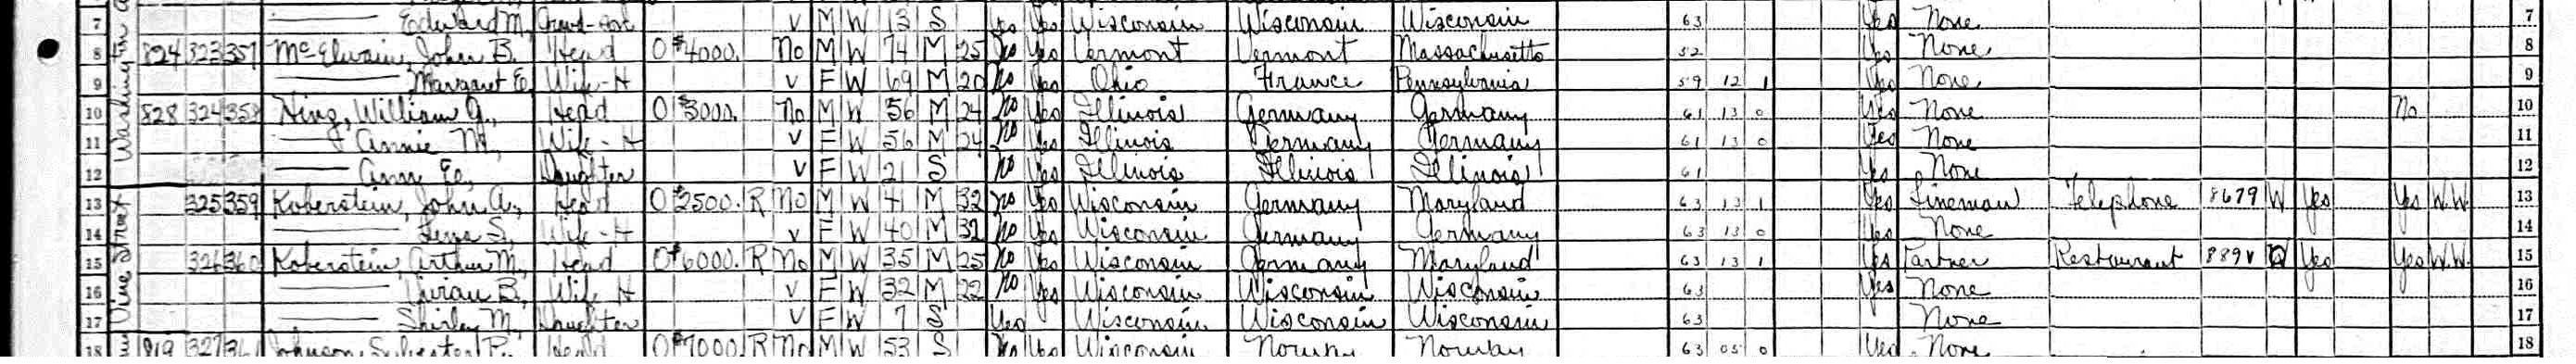 7 Edward M. Grand-son V M W 13 S Yes Yes Wisconsin Wisconsin Wisconsin 63 Yes None 7
8 824 323 357 McElwain, John B. Head O $4000. No M W 74 M 25 No Yes Vermont Vermont Massachusetts 52 Yes None 8
9 Margaret E. Wife-H V F W 69 M 20 No Yes Ohio France Pennsylvania 59 12 1 Yes None 9
10 828 324 358 William G., Head O $3000. No M W 56 M 24 No Yes Illinois Germany Germany 61 13 0 Yes None No 10
11 Annie M., Wife-H V F W 56 M 24 No Yes Illinois Germany Germany 61 13 0 Yes None 11
12 Ann E., Daughter V F W 21 S No Yes Illinois Illinois Illinois 61 Yes None 12
13 325 359 Koberstein, John A., Head O $2500. R No M W 41 M 32 No Yes Wisconsin Germany Maryland 63 13 1 Yes Lineman Telephone 8679 W Yes Yes W.W. 13
14 Lena S., Wife-H V F W 40 M 32 No Yes Wisconsin Germany Germany 63 13 0 Yes None 14
15 326 360 Koberstein, Arthur M., Head O $6000. R No M W 35 M 25 No Yes Wisconsin Germany Maryland 63 13 1 Yes Partner Restaurant 889V O Yes Yes W.W. 15
16 B., Wife H V F W 32 M 22 No Yes Wisconsin Wisconsin Wisconsin 63 Yes None 16
17 Shirley M., Daughter V F W 7 S Yes Wisconsin Wisconsin Wisconsin 63 None 17
18 819 327 361 Johnson, Sylvester P., Head O $7000 R No M W 53 S No Yes Wisconsin Norway Norway 63 05 0 Yes None 18
Washington
Vine Street